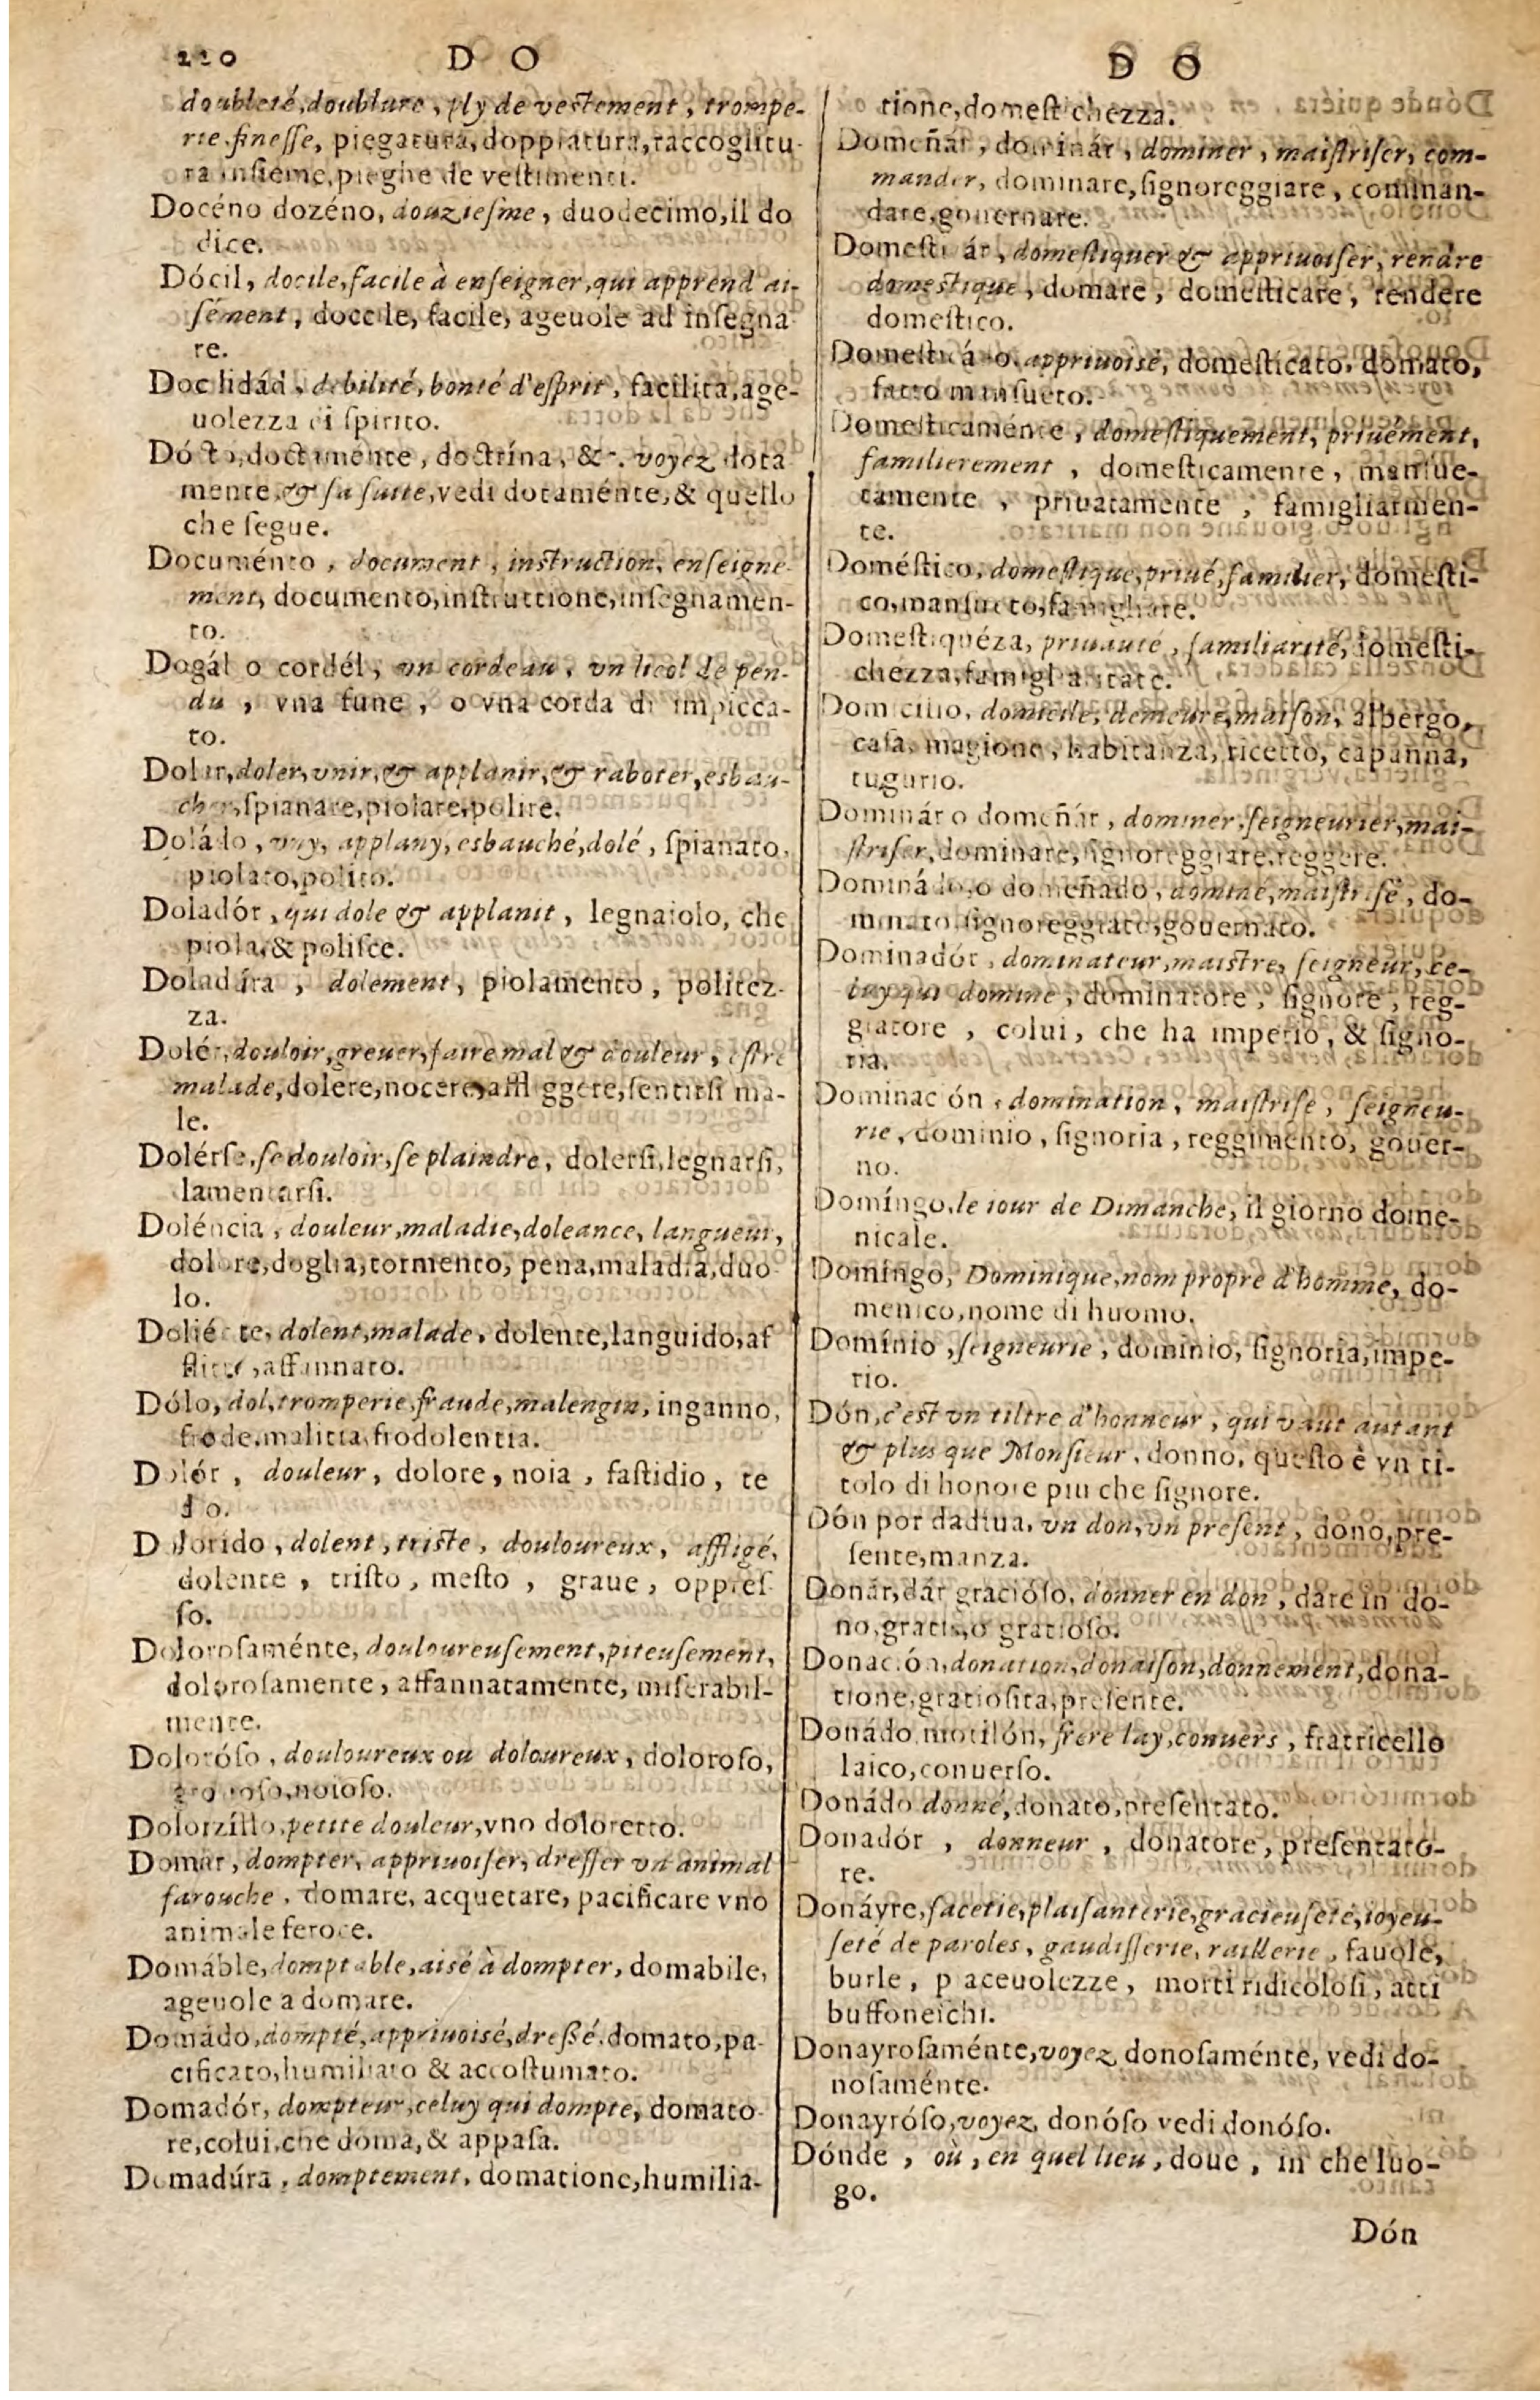 220 D O
doubleté, doublure, ply de vestement, trompe-
rie, finesse, piegatura, doppiatura, raccoglitu-
ra insieme, pieghe de vestimenti.
Docéno dozéno, douziesme, duodecimo, il do
dice.
Dócil, docile, facile à enseigner, qui apprend ai-
sément, docile, facile, ageuole ad insegna
re.
Docilidád, debilité, bonté d'esprit, facilita, age-
uolezza di spirito.
Dócto, doctaménte, doctrína, &c. voyez dota
mente, & sa suitte, vedi dotaménte, & quello
che segue.
Documénto, document, instruction, enseigne-
ment, documento, instruttione, insegnamen-
to.
Dogál o cordél, vn cordeau, vn licol de pen-
du, vna fune, o vna corda di impicca-
to.
Dolar, doler, vnir, & applanir, & raboter, esbau-
cher, spianare, piolare, polire.
Doládo, vny, applany, esbauché, dolé, spianato,
piolato, polito.
Doladór, qui dole & applanit, legnaiolo, che
piola, & polisce.
Doladúra, dolement, piolamento, politez-
za.
Dolér, douloir, greuer, faire mal & douleur, estre
malade, dolere, nocere, affliggere, sentirsi ma-
le.
Dolérse, se douloir, se plaindre, dolersi, legnarsi,
lamentarsi.
Doléncia, douleur, maladie, doleance, langueur,
dolore, doglia, tormento, pena, maladia, duo
lo.
Doliénte, dolent, malade, dolente, languido, af
flitto, affannato.
Dólo, dol, tromperie, fraude, malengin, inganno,
frode, malitia, frodolentia.
Dolór, douleur, dolore, noia, fastidio, te
dio.
Dolorido, dolent, triste, douloureux, affligé,
dolente, tristo, mesto, graue, oppres-
so.
Dolorosaménte, douloureusement, piteusement,
dolorosamente, affannatamente, miserabil-
mente.
Doloróso, douloureux ou doloureux, doloroso,
noioso.
Dolorzíllo, petite douleur, vno doloretto.
Domar, dompter, appriuoiser, dresser vn animal
farouche, domare, acquetare, pacificare vno
animale feroce.
Domáble, domptable, aisé à dompter, domabile,
ageuole a domare.
Domádo, dompté, appriuoisé, dressé, domato, pa-
cificato, humiliato & accostumato.
Domadór, dompteur, celuy qui dompte, domato-
re, colui, che doma, & appasa.
Domadúra, domptement, domatione, humilia-
D O
tione, domestichezza.
Domeñár, dominár, dominer, maistriser, com-
mander, dominare, signoreggiare, comman-
dare, gouernare.
Domesticár, domestiquer & appriuoiser, rendre
domestique, domare, domesticare, rendere
domestico.
Domesticádo, appriuoisé, domesticato, domato,
fatto mansueto.
Domesticaménte, domestiquement, priuément,
familierement, domesticamente, mansue-
tamente, priuatamente, famigliarmen-
te.
Doméstico, domestique, priué, familier, domesti-
co, mansueto, famigliare.
Domestiquéza, priuauté, familiarité, domesti-
chezza, famigliaritate.
Domicilio, domicile, demeure, maison, albergo,
casa, magione, habitanza, ricetto, capanna,
tugurio.
Dominár o domeñár, dominer, seigneurier, mai-
striser, dominare, signoreggiare, reggere.
Dominádo, o domeñado, dominé, maistrisé, do-
minato, signoreggiato, gouernato.
Dominadór, dominateur, maistre, seigneur, ce-
luy qui domine, dominatore, signore, reg-
giatore, colui, che ha imperio, & signo-
ria.
Dominación, domination, maistrise, seigneu-
rie, dominio, signoria, reggimento, gouer-
no.
Domíngo, le iour de Dimanche, il giorno dome-
nicale.
Domíngo, Dominique, nom propre d'homme, do-
menico, nome di huomo.
Domínio, seigneurie, dominio, signoria, impe-
rio.
Dón, c'est vn tiltre d'honneur, qui vaut autant
& plus que Monsieur, donno, questo è vn ti-
tolo di honore piu che signore.
Dón por dadiua, vn don, vn present, dono, pre-
sente, manza.
Donár, dár gracióso, donner en don, dare in do-
no, gratis, o gratioso.
Donación, donation, donaison, donnement, dona-
tione, gratiosita, presente.
Donádo motilón, frere lay, conuers, fratricello
laico, conuerso.
Donádo donné, donato, presentato.
Donadór, donneur, donatore, presentato-
re.
Donáyre, facetie, plaisanterie, gracieuseté, ioyeu-
seté de paroles, gaudisserie, raillerie, fauole,
burle, piaceuolezze, motti ridicolosi, atti
buffoneschi.
Donayrosaménte, voyez donosaménte, vedi do-
nosaménte.
Donayróso, voyez donóso vedi donóso.
Dónde, où, en quel lieu, doue, in che luo-
go.
Dón